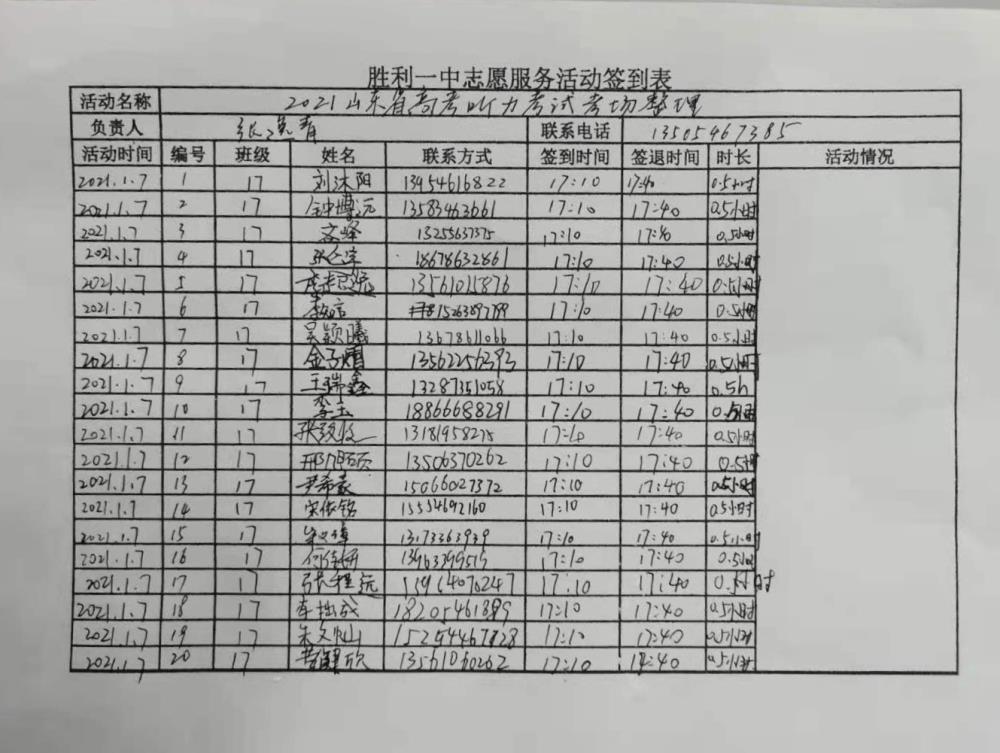 胜利一中志愿服务活动签到表
活动名称 2021山东省高考听力考试考场整理
负责人 张 青 联系电话 13505467385
活动时间 编号 班级 姓名 联系方式 签到时间 签退时间 时长 活动情况
2021.1.7 1 17 刘沐阳 13954616822 17:10 17:40 0.5小时
2021.1.7 2 17 钟博远 13583463661 17:10 17:40 0.5小时
2021.1.7 3 17 13255637375 17:10 17:40 0.5小时
2021.1.7 4 17 18678632861 17:10 17:40 0.5小时
2021.1.7 5 17 13561015876 17:10 17:40 0.5小时
2021.1.7 6 17 15263897799 17:10 17:40 0.5小时
2021.1.7 7 17 吴颖曦 13678611066 17:10 17:40 0.5小时
2021.1.7 8 17 13562256393 17:10 17:40 0.5小时
2021.1.7 9 17 王瑞鑫 13287351058 17:10 17:40 0.5h
2021.1.7 10 17 李玉 18866688291 17:10 17:40 0.5小时
2021.1.7 11 17 13181958275 17:10 17:40 0.5小时
2021.1.7 12 17 13506370262 17:10 17:40 0.5小时
2021.1.7 13 17 尹希豪 15066027372 17:10 17:40 0.5小时
2021.1.7 14 17 宋依铭 15554692160 17:10 17:40 0.5小时
2021.1.7 15 17 13173363939 17:10 17:40 0.5小时
2021.1.7 16 17 何佳妍 13963399515 17:10 17:40 0.5小时
2021.1.7 17 17 张程远 17:10 17:40 0.5小时
2021.1.7 18 17 17:10 17:40 0.5小时
2021.1.7 19 17 朱文灿 17:10 17:40 0.5小时
2021.1.7 20 17 13561060262 17:10 17:40 0.5小时